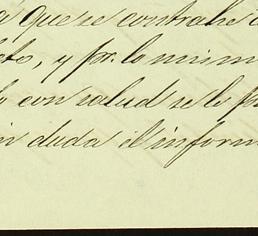 que se contrahe
to, y pr. lo mism
con salud se lo p
in duda el inform